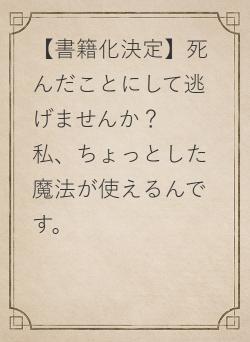 【書籍化決定】死
んだことにして逃
げませんか？
私、ちょっとした
魔法が使えるんで
す。